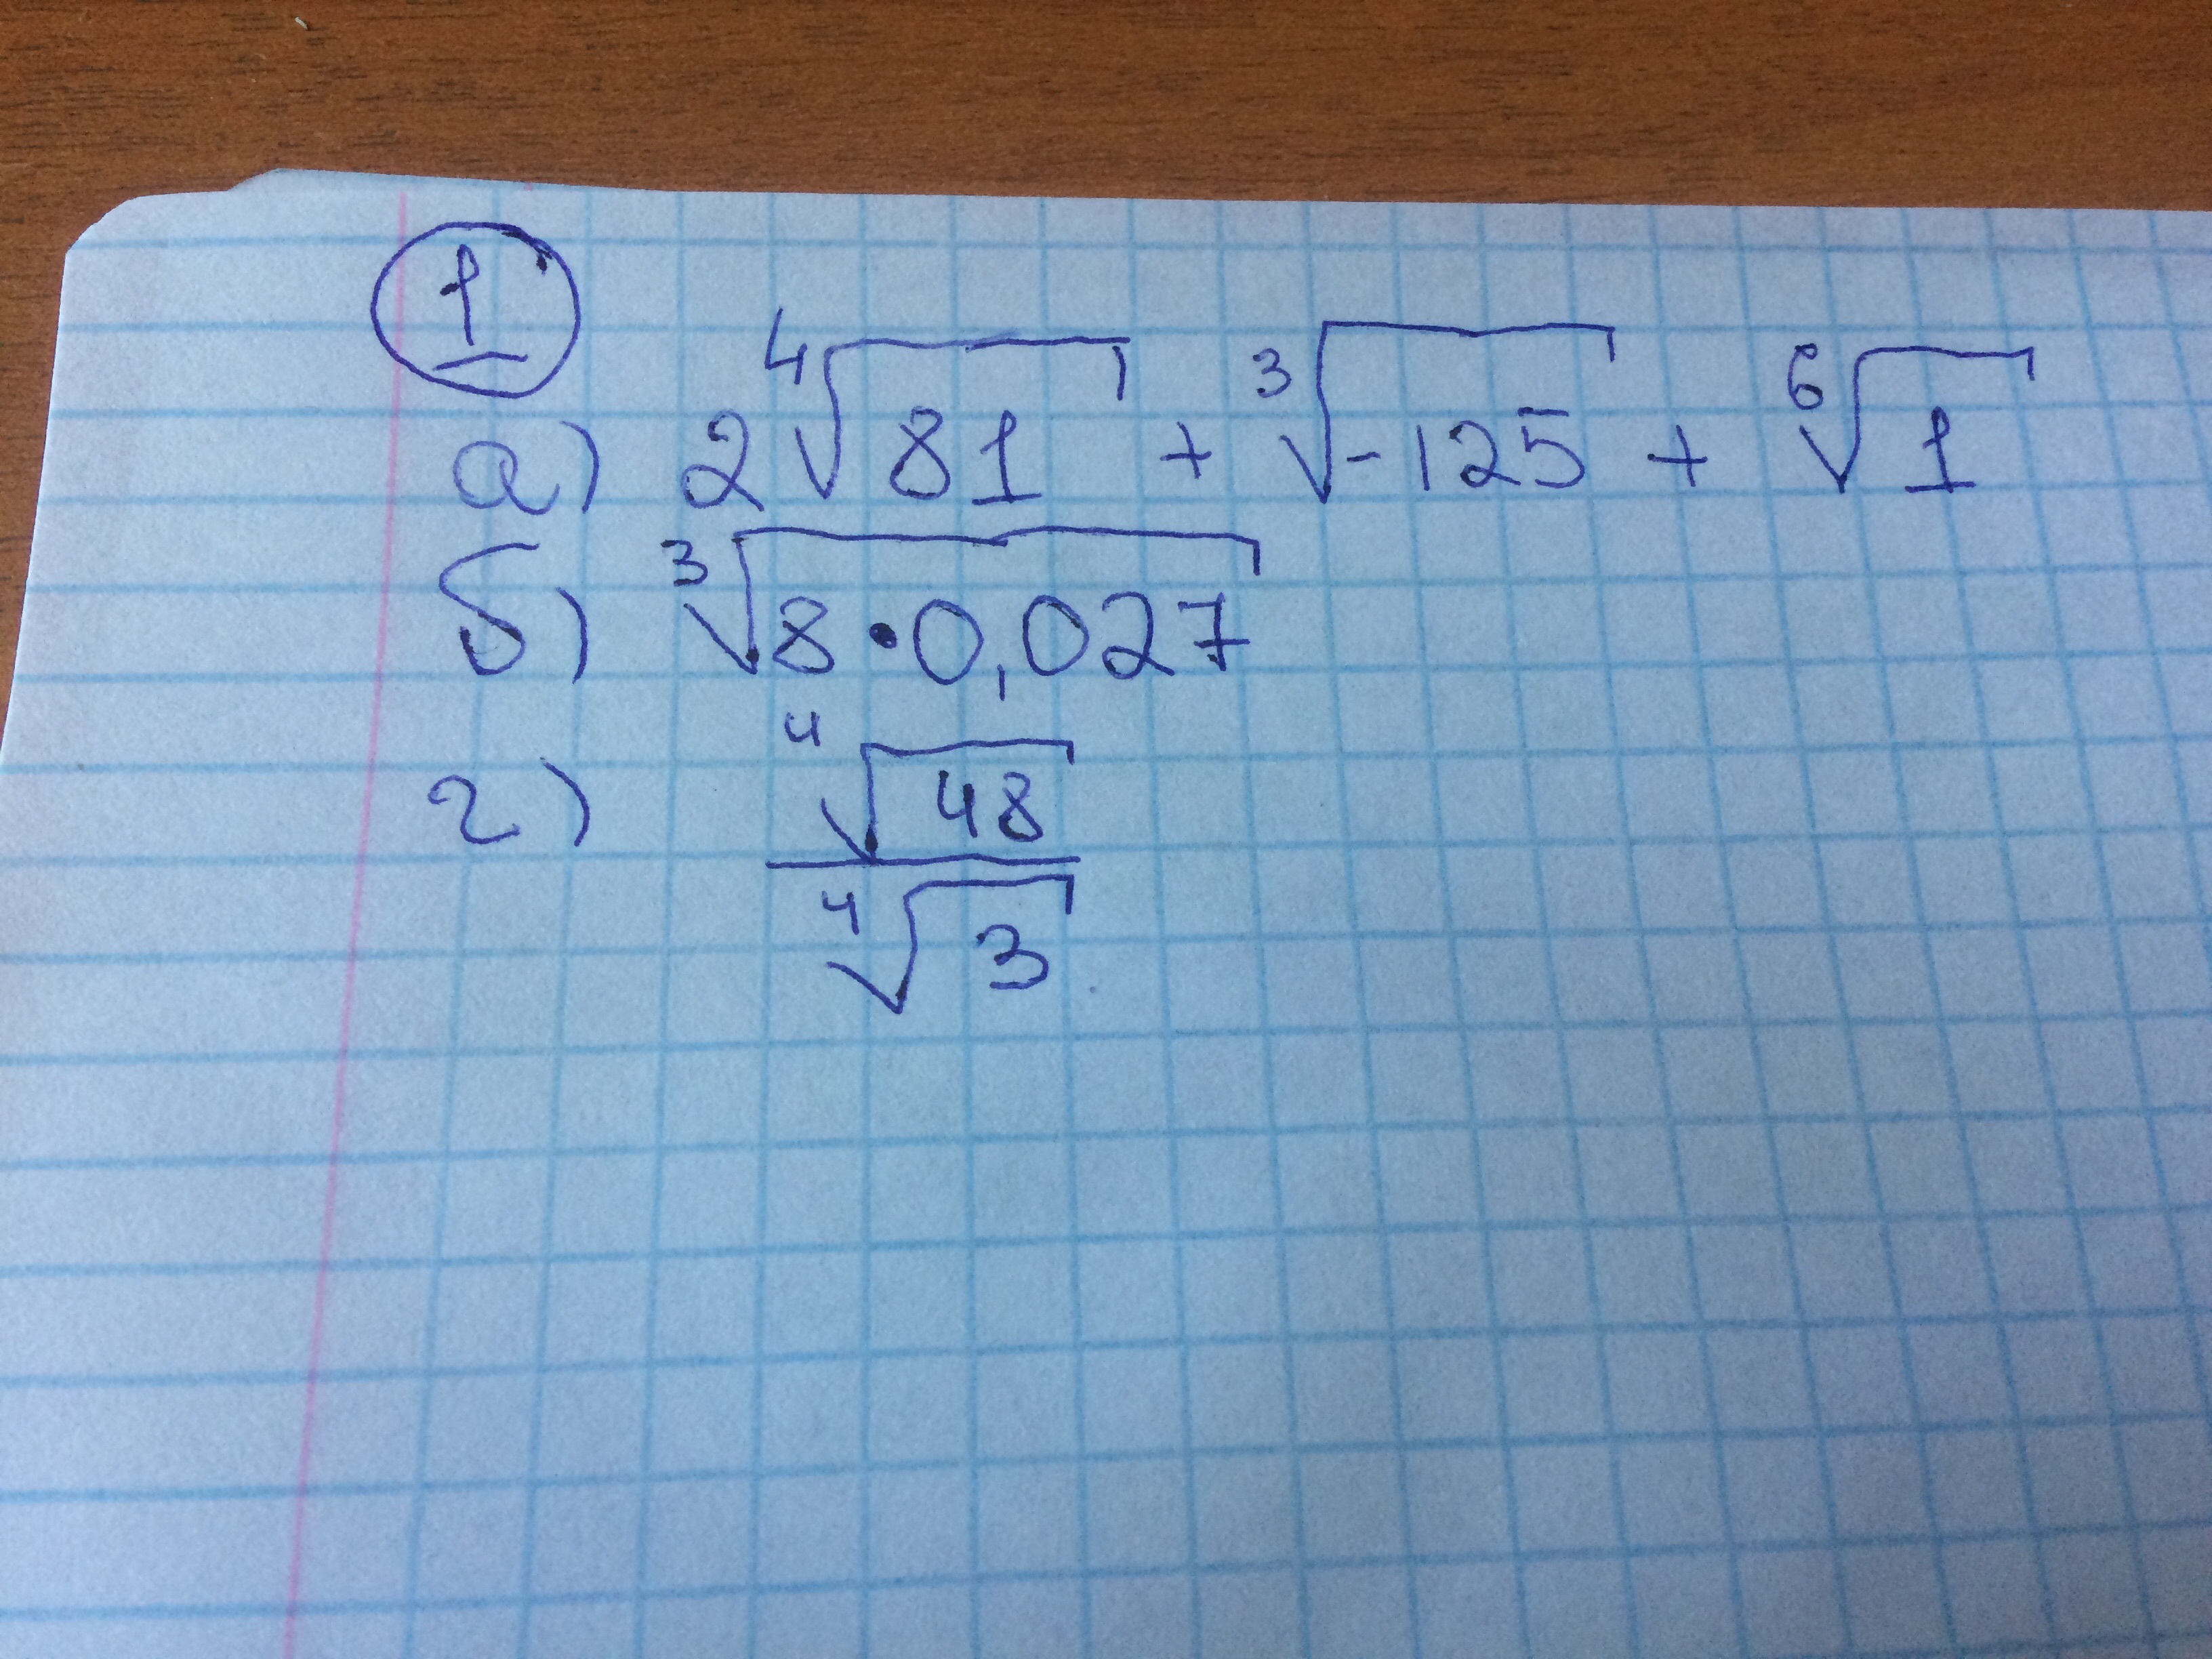 1
а) 2 ⁴√81 + ³√-125 + ⁶√1
б) ³√8·0,027
г) ⁴√48
⁴√3